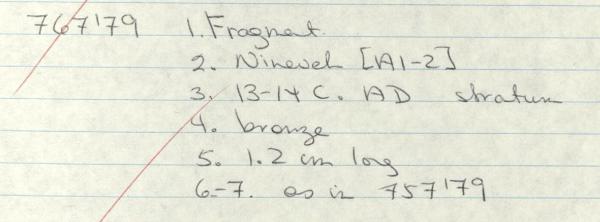 767'79 1. Fragment.
2. Nineveh [A1-2]
3. 13-14 C. AD stratum
4. bronze
5. 1.2 cm long
6-7. as in 757'79